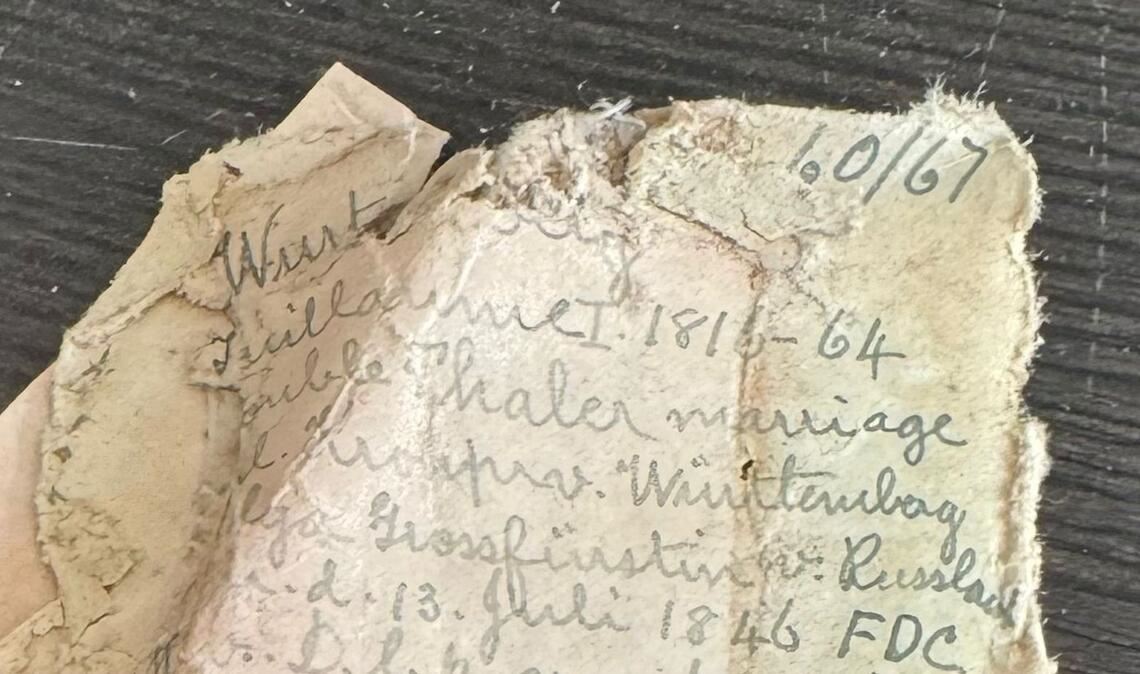 60/67
Wurt
Guillaume I. 1816-64
ouble Thaler marriage
l. Kronpr. v. Württemberg
lga Grossfürstin v. Russland
d. 13. Juli 1846 FDC